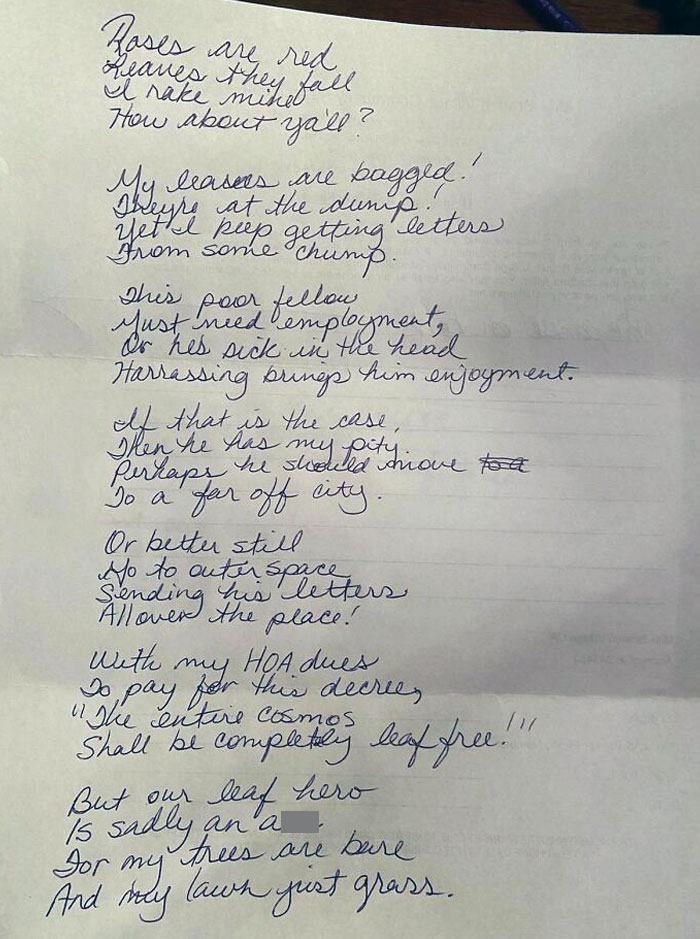 Roses are red
Leaves they fall
I rake mine
How about ya'll?
My leaves are bagged!
They're at the dump!
Yet I keep getting letters
From some chump.
This poor fellow
Must need employment,
Or he's sick in the head
Harrassing brings him enjoyment.
If that is the case,
Then he has my pity.
Perhaps he should move
To a far off city.
Or better still
Go to outer space
Sending his letters
All over the place!
With my HOA dues
To pay for this decree,
"The entire cosmos
Shall be completely leaf free!"
But our leaf hero
Is sadly an a
For my trees are bare
And my lawn just grass.